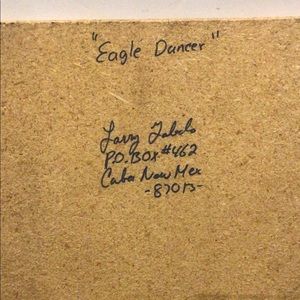 "Eagle Dancer"
Larry
P.O. BOX #462
Cuba New Mex
-87013-